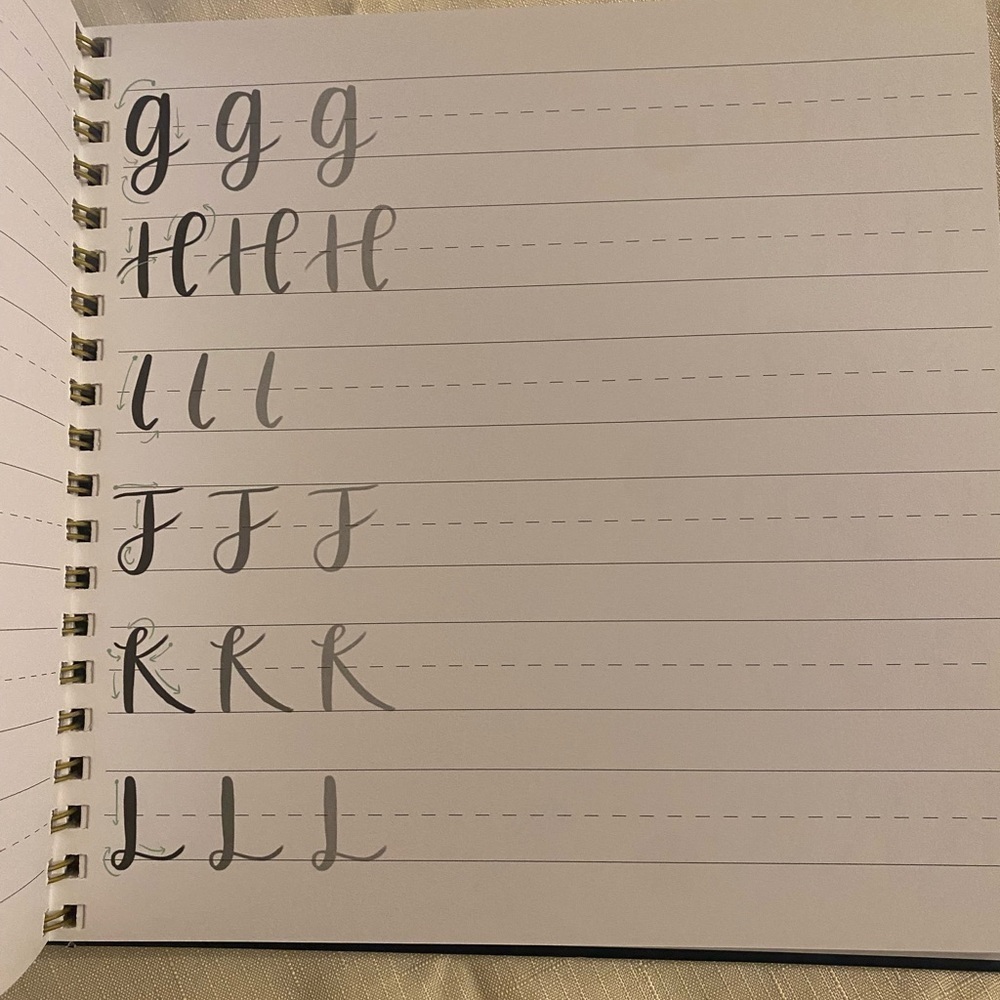 G G G
H H H
I I I
J J J
K K K
L L L